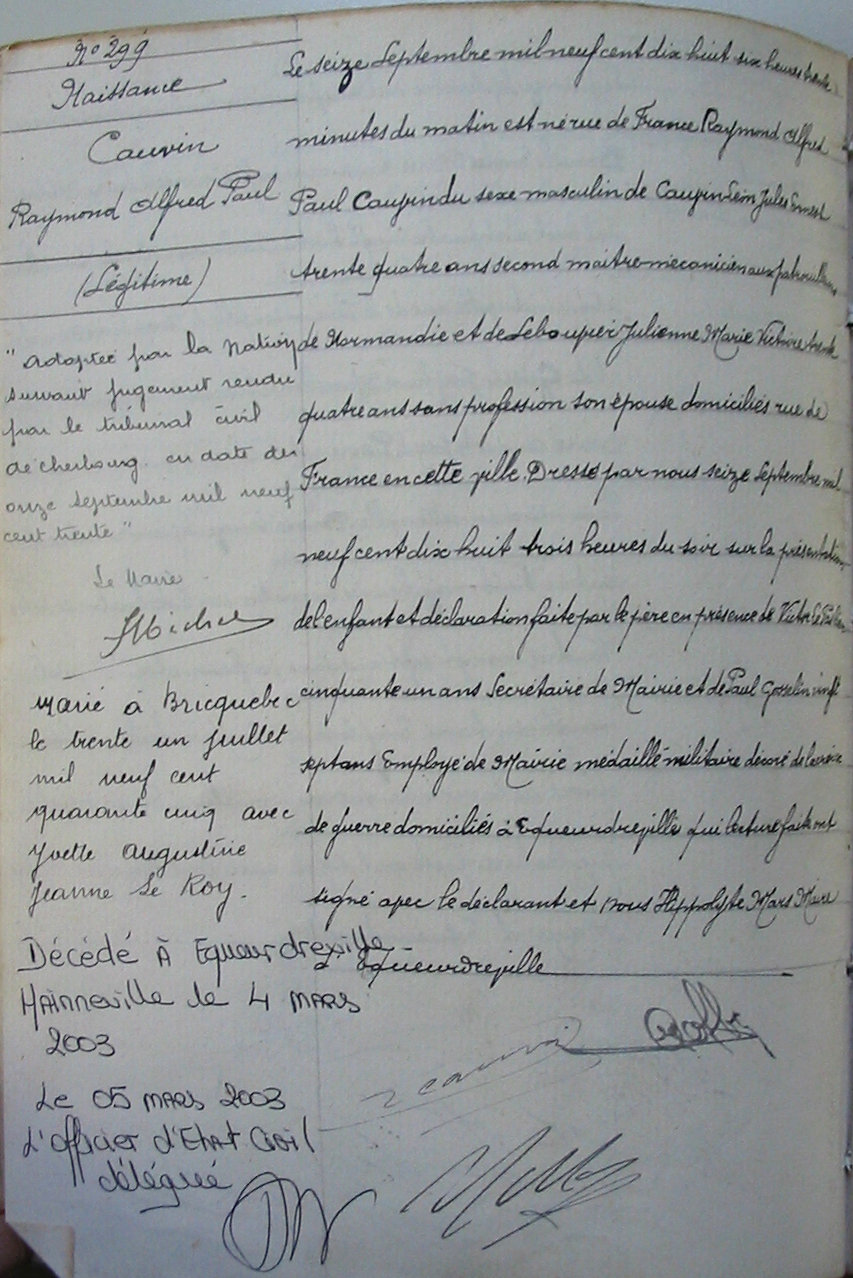 No 299
Naissance
Cauvin
Raymond Alfred Paul
(Légitime)
"adoptée par la Nation
suivant jugement rendu
par le tribunal civil
de cherbourg en date du
onze septembre mil neuf
cent trente"
Le Maire
Marié à Bricquebec
le trente un juillet
mil neuf cent
quarante cinq avec
Yvette Augustine
Jeanne Le Roy.
Décédé à Equeurdreville-
Hainneville le 4 mars
2003
Le 05 mars 2003
L'officier d'Etat Civil
déléguée
Le seize Septembre mil neuf cent dix huit six heures trente
minutes du matin est né rue de France Raymond Alfred
Paul Cauvin du sexe masculin de Cauvin Jules Ernest
trente quatre ans second maitre mécanicien aux patrouilleurs
de Normandie et de Leboupier Julienne Marie Victoire trente
quatre ans sans profession son épouse domiciliés rue de
France en cette ville. Dressé par nous seize Septembre mil
neuf cent dix huit trois heures du soir sur la présentation
de l'enfant et déclaration faite par le père en présence de Victor
cinquante un ans Secrétaire de Mairie et de Paul Gosselin vingt
sept ans Employé de Mairie médaillé militaire décoré de la croix
de guerre domiciliés à Equeurdreville qui lecture faite ont
signé avec le déclarant et nous Hippolyte Mars Maire
d'Equeurdreville
Cauvin